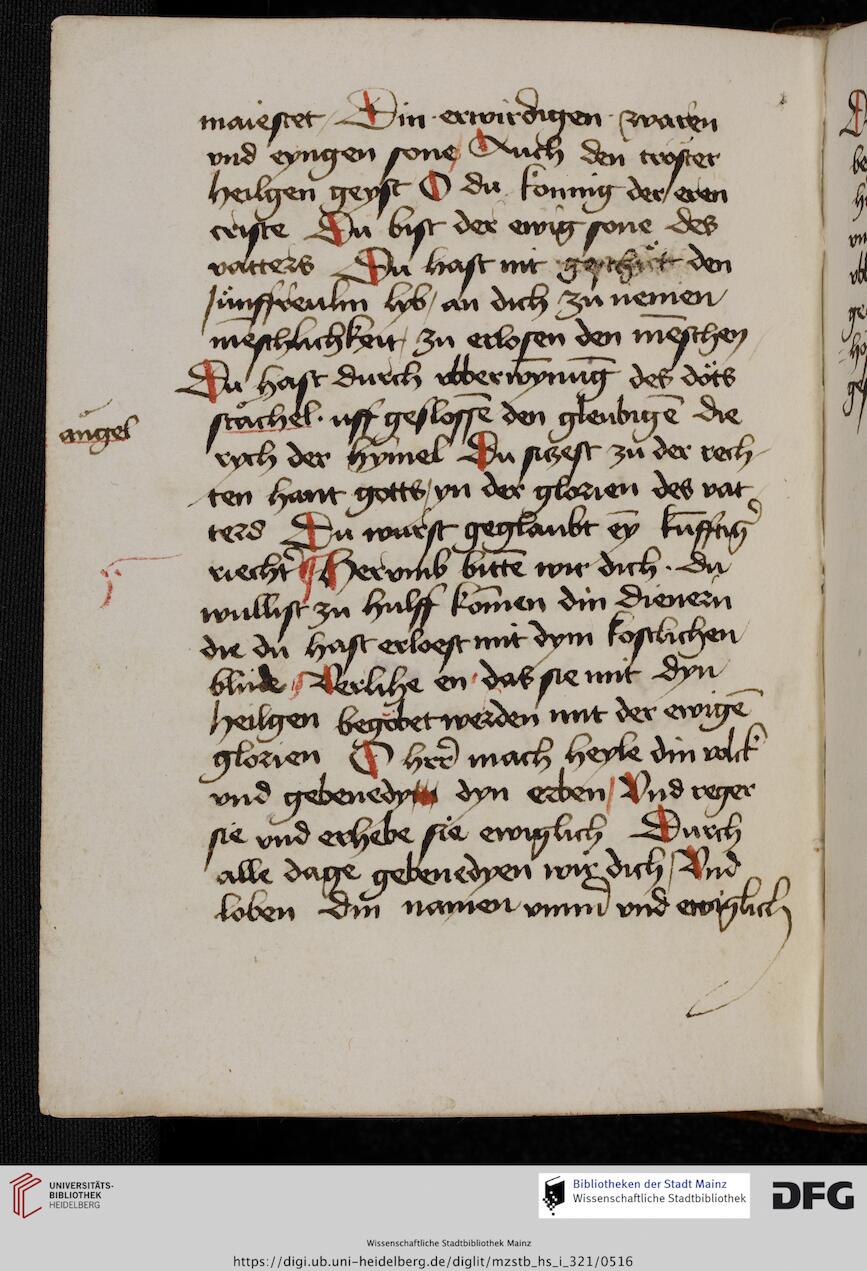 maiestet / Din erwirdigen waren
vnd eyngen sone / Auch den troster
heilgen geyst O du konnig der eren
criste Du bist der ewig sone des
vatters Du hast nit geschut den
junffreulin lyb / an dich zu nemen
mēschlichkeit / zu erlosen den mēschen
Du hast durch vberwȳnūg des döts
stachel · uff geslossē den gleubigē die
angel
rych der hymel Du sizest zu der rech-
ten hant gotts / yn der glorien des vat
ters Du wurst geglaubt ey kūfftig
riecht' Hervmb bittē wir dich · du
wullist zu hulff komen din dienern
die du hast erloest mit dym kostlichen
blude / Verlihe en · das sie mit dyn
heilgen begobet werden mit der ewigē
glorien O herr mach heyle din volck
vnd gebenedy dyn erben / Vnd reger
sie vnd erhebe sie ewiglich Durch
alle dage gebenedyen wir dich / Vnd
loben din namen vmm' vnd ewiglich
UNIVERSITÄTS-
BIBLIOTHEK
HEIDELBERG
Bibliotheken der Stadt Mainz
Wissenschaftliche Stadtbibliothek
DFG
Wissenschaftliche Stadtbibliothek Mainz
https://digi.ub.uni-heidelberg.de/diglit/mzstb_hs_i_321/0516